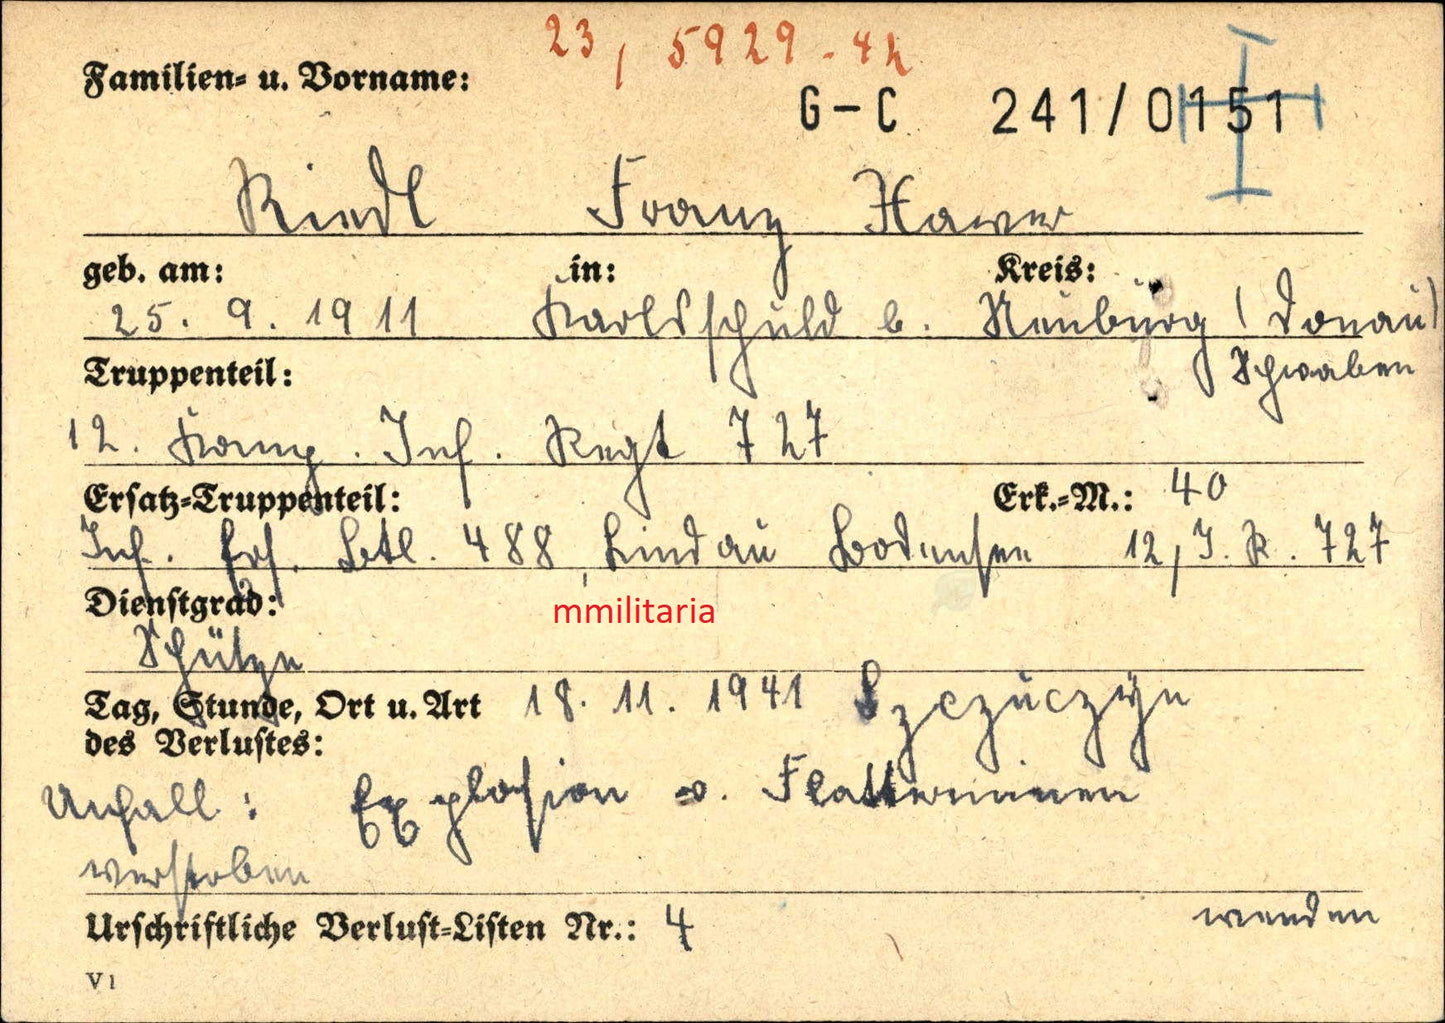 23, 5929-42
Familien- u. Vorname:
G-C 241/0151
Riedl Franz Xaver
geb. am: in: Kreis:
25. 9. 1911 Karlshuld b. Neuburg (Donau)
Schwaben
Truppenteil:
12. Komp. Inf. Regt 727
Ersatz-Truppenteil: Erk.-M.: 40
Inf. Ers. Btl. 488, Lindau Bodensee 12, I.R. 727
Dienstgrad:
mmilitaria
Schütze
Tag, Stunde, Ort u. Art 18. 11. 1941 Szczuczyn
des Verlustes:
Unfall: Explosion v. Flatterminen
verstorben
Urschriftliche Verlust-Listen Nr.: 4 wenden
V1